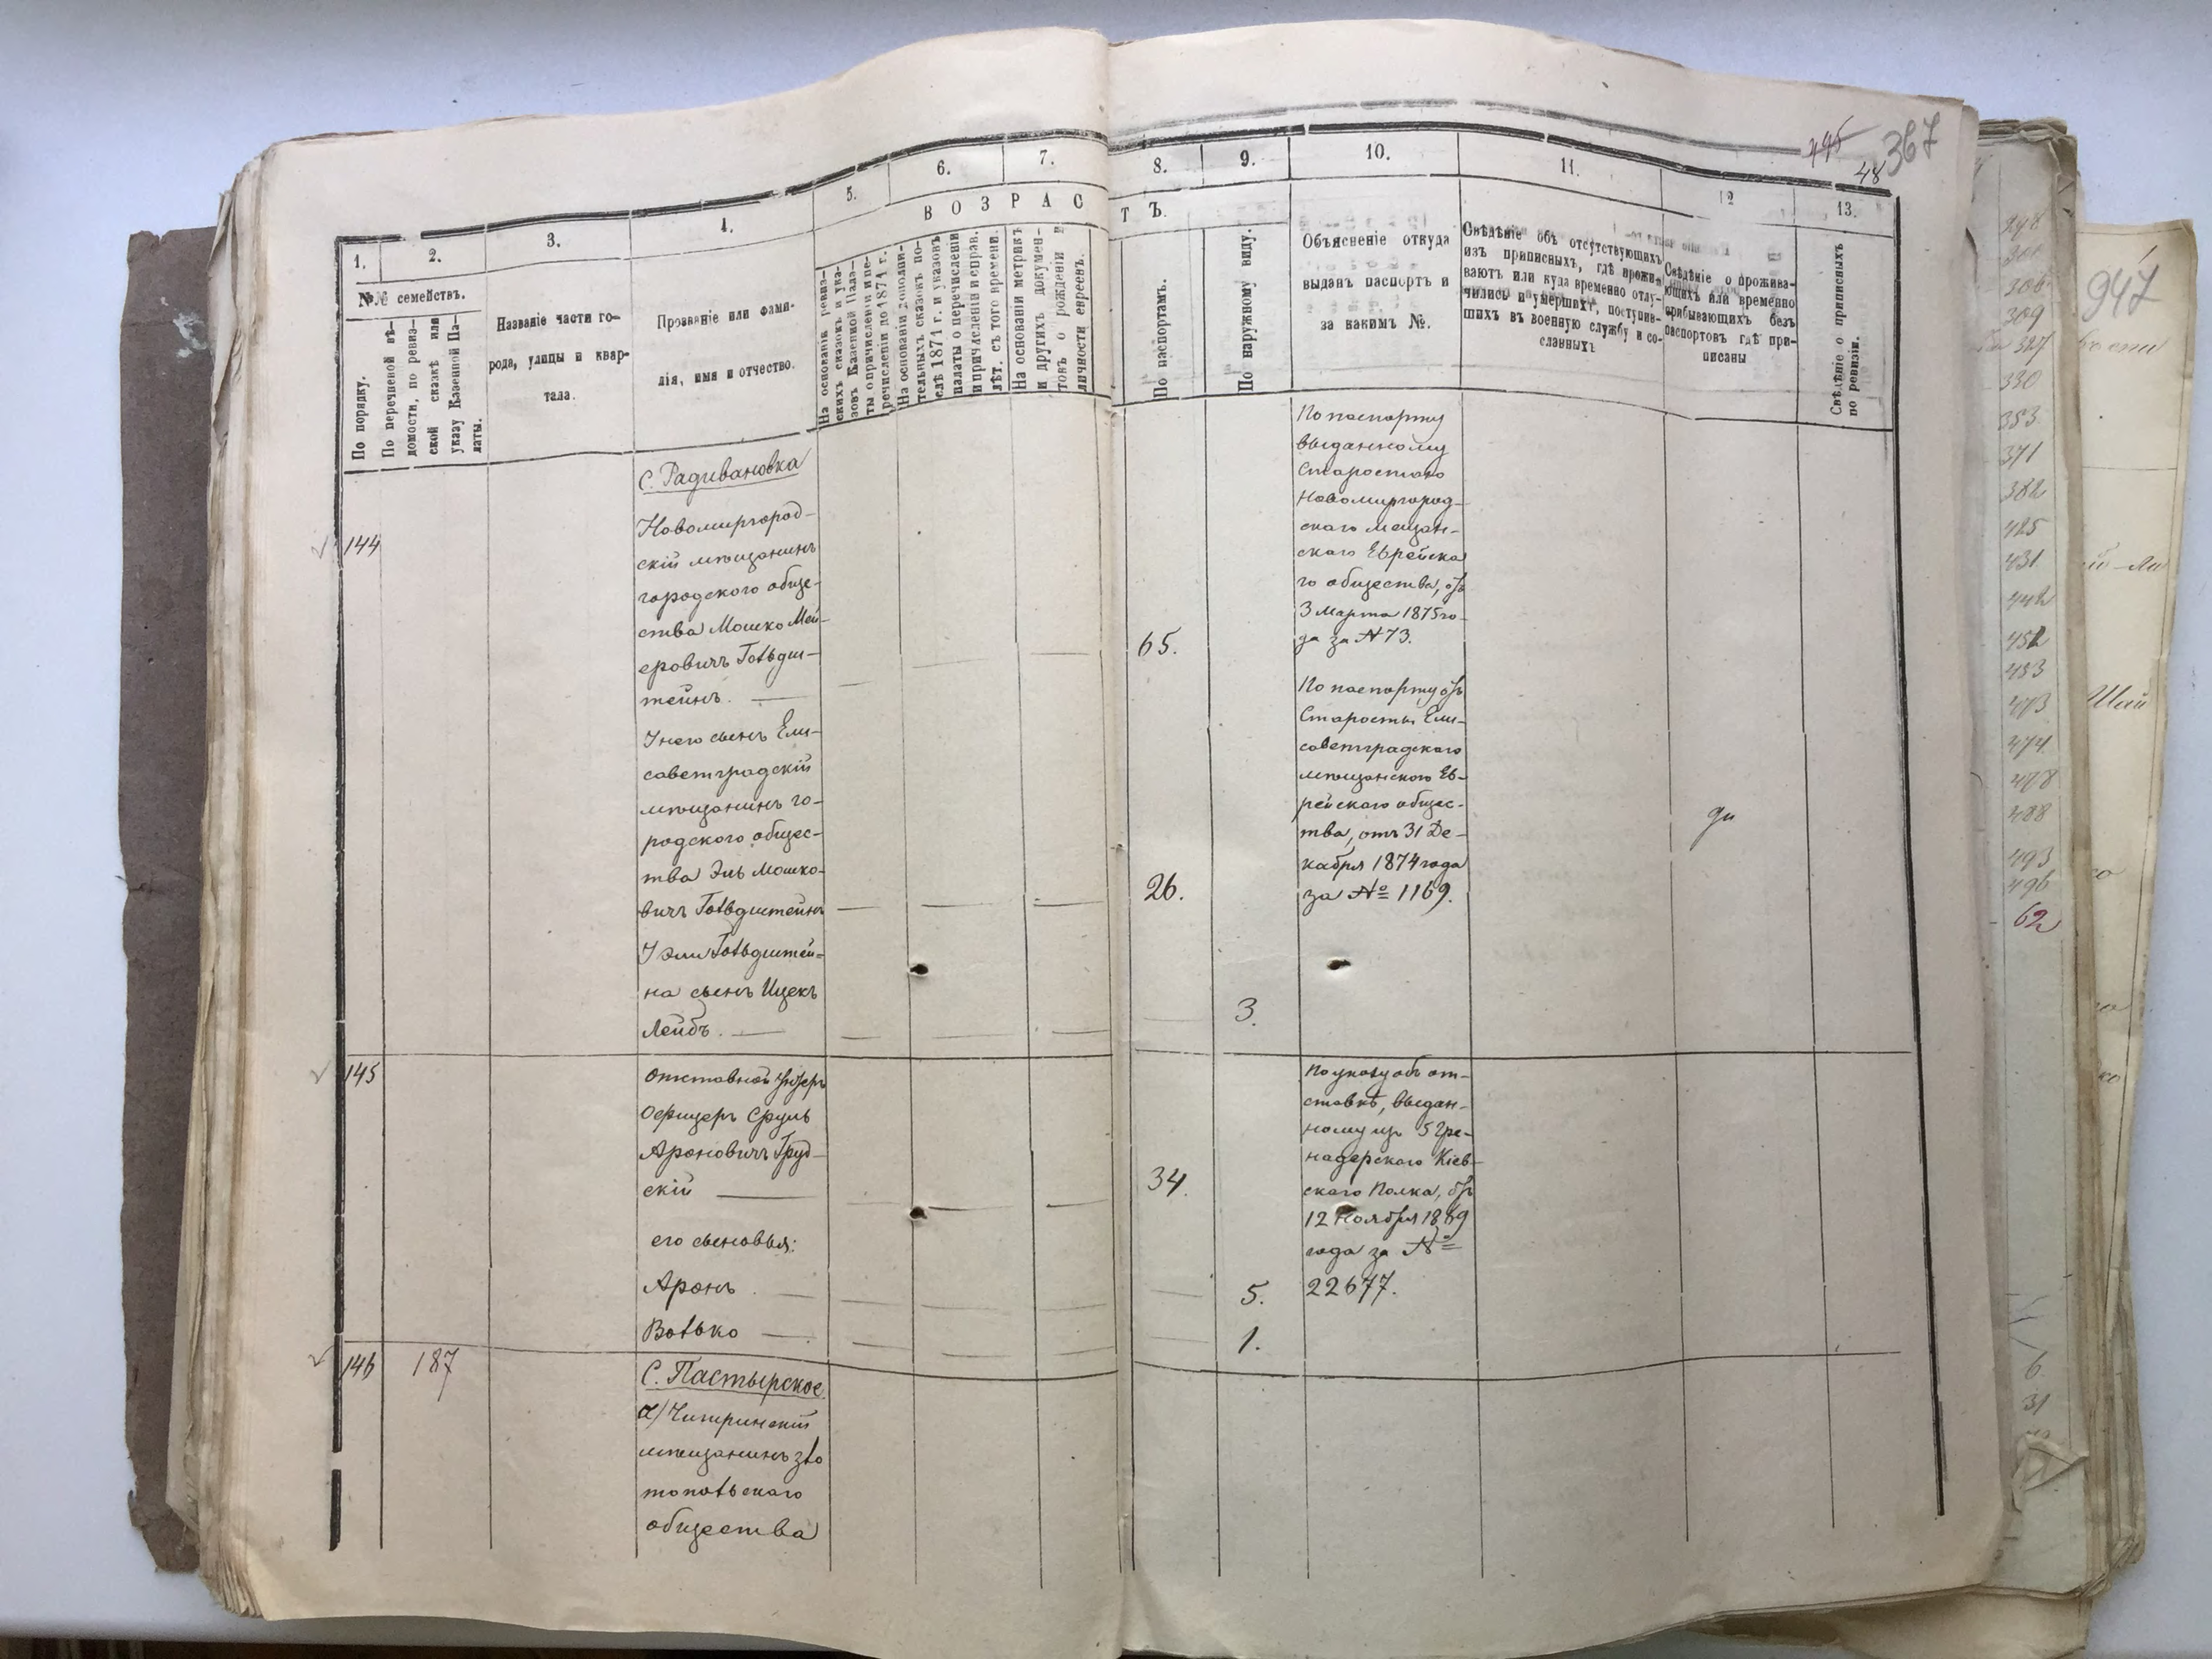 495
48
367
1.
2.
3.
4.
5.
6.
7.
8.
9.
10.
11.
12
13.
В О З Р А С Т Ъ.
№№ семействъ.
По порядку.
По перечневой вѣ-
домости, по ревиз-
ской сказкѣ или
указу Казенной Па-
латы.
Названіе части го-
рода, улицы и квар-
тала.
Прозваніе или фами-
лія, имя и отчество.
На основаніи ревиз-
скихъ сказокъ и ука-
зовъ Казенной Пала-
ты о причисленіи и пе-
речисленіи до 1871 г.
На основаніи дополни-
тельныхъ сказокъ по-
слѣ 1871 г. и указовъ
палаты о перечисленіи
и причисленіи и справ.
лѣт. съ того времени.
На основаніи метрикъ
и другихъ докумен-
товъ о рожденіи и
личности евреевъ.
По паспортамъ.
По наружному виду.
Объясненіе откуда
выданъ паспортъ и
за какимъ №.
Свѣдѣніе объ отсутствующихъ
изъ приписныхъ, гдѣ прожи-
ваютъ или куда временно отлу-
чились и умершихъ, поступив-
шихъ въ военную службу и со-
сланныхъ
Свѣдѣніе о прожива-
ющихъ или временно
прибывающихъ безъ
паспортовъ гдѣ при-
писаны
Свѣдѣніе о приписныхъ
по ревизіи.
С. Радивановка
144
Новомиргород-
скій мѣщанинъ
городского обще-
ства Мошко Мей-
еровичъ Гольдш-
тейнъ.
65.
По паспорту
выданному
Старостою
Новомиргород-
скаго мещан-
скаго Еврейска
го общества, отъ
3 Марта 1875 го-
да за № 73.
У него сынъ Ели-
саветградскій
мѣщанинъ го-
родского общес-
тва Эль Мошко-
вичъ Гольдштейнъ
26.
По паспорту отъ
Старосты Ели-
саветградскаго
мѣщанского Ев-
рейскаго общес-
тва, отъ 31 Де-
кабря 1874 года
за № 1169.
У Эли Гольдштей-
на сынъ Ицекъ
Лейбъ.
3.
145
Отставной Унтеръ
Офицеръ Сруль
Ароновичъ Груд-
скій
34.
По указу объ от-
ставкѣ, выдан-
ному изъ 5 Гре-
надерского Кіев-
скаго Полка, отъ
12 Ноября 1869
года за №
22677.
его сыновья:
Аронъ
5.
Волько
1.
146
187
С. Пастырское
а) Чигиринскій
мѣщанинъ зло
топольскаго
общества
947
298
309
327
330
353
371
382
425
431
442
452
453
473
474
478
488
493
496
62
6
31